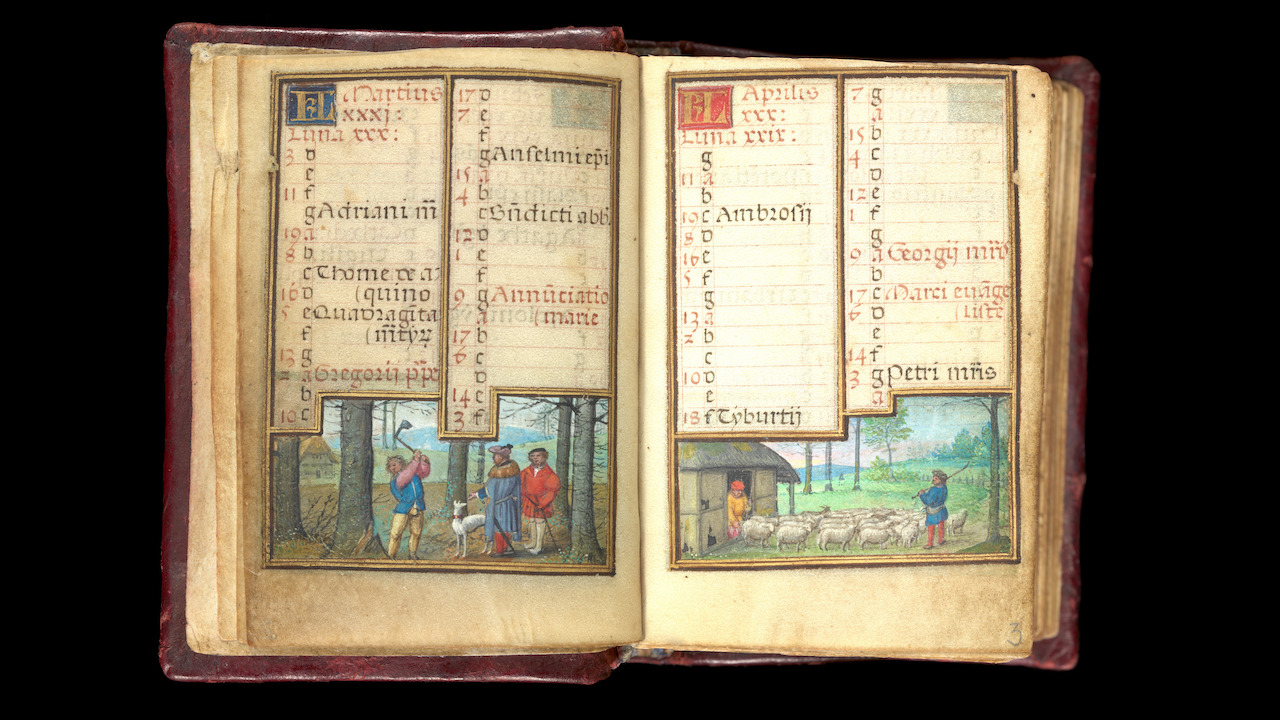 KL Martius
xxxi:
Luna xxx:
3 d
e
11 f
g Adriani m̄
19 a
8 b
c Thome de a
16 d (quino
5 e Quadragīta
f (m̄tyꝝ
13 g
2 a Gregorii pp̄
b
10 c
17 d
7 e
f
g Anselmi ep̄i
15 a
4 b
c Bn̄dicti abb̄
12 d
1 e
f
9 g Annūciatio
a (marie
17 b
6 c
d
14 e
3 f
KL Aprilis
xxx:
Luna xxix:
g
11 a
b
19 c Ambrosij
8 d
16 e
5 f
g
13 a
2 b
c
10 d
e
18 f Tyburtij
7 g
a
15 b
4 c
d
12 e
1 f
g
9 a Georgij mr̄is
b
17 c Marci evāge
6 d (liste
e
14 f
3 g Petri mr̄is
a
3